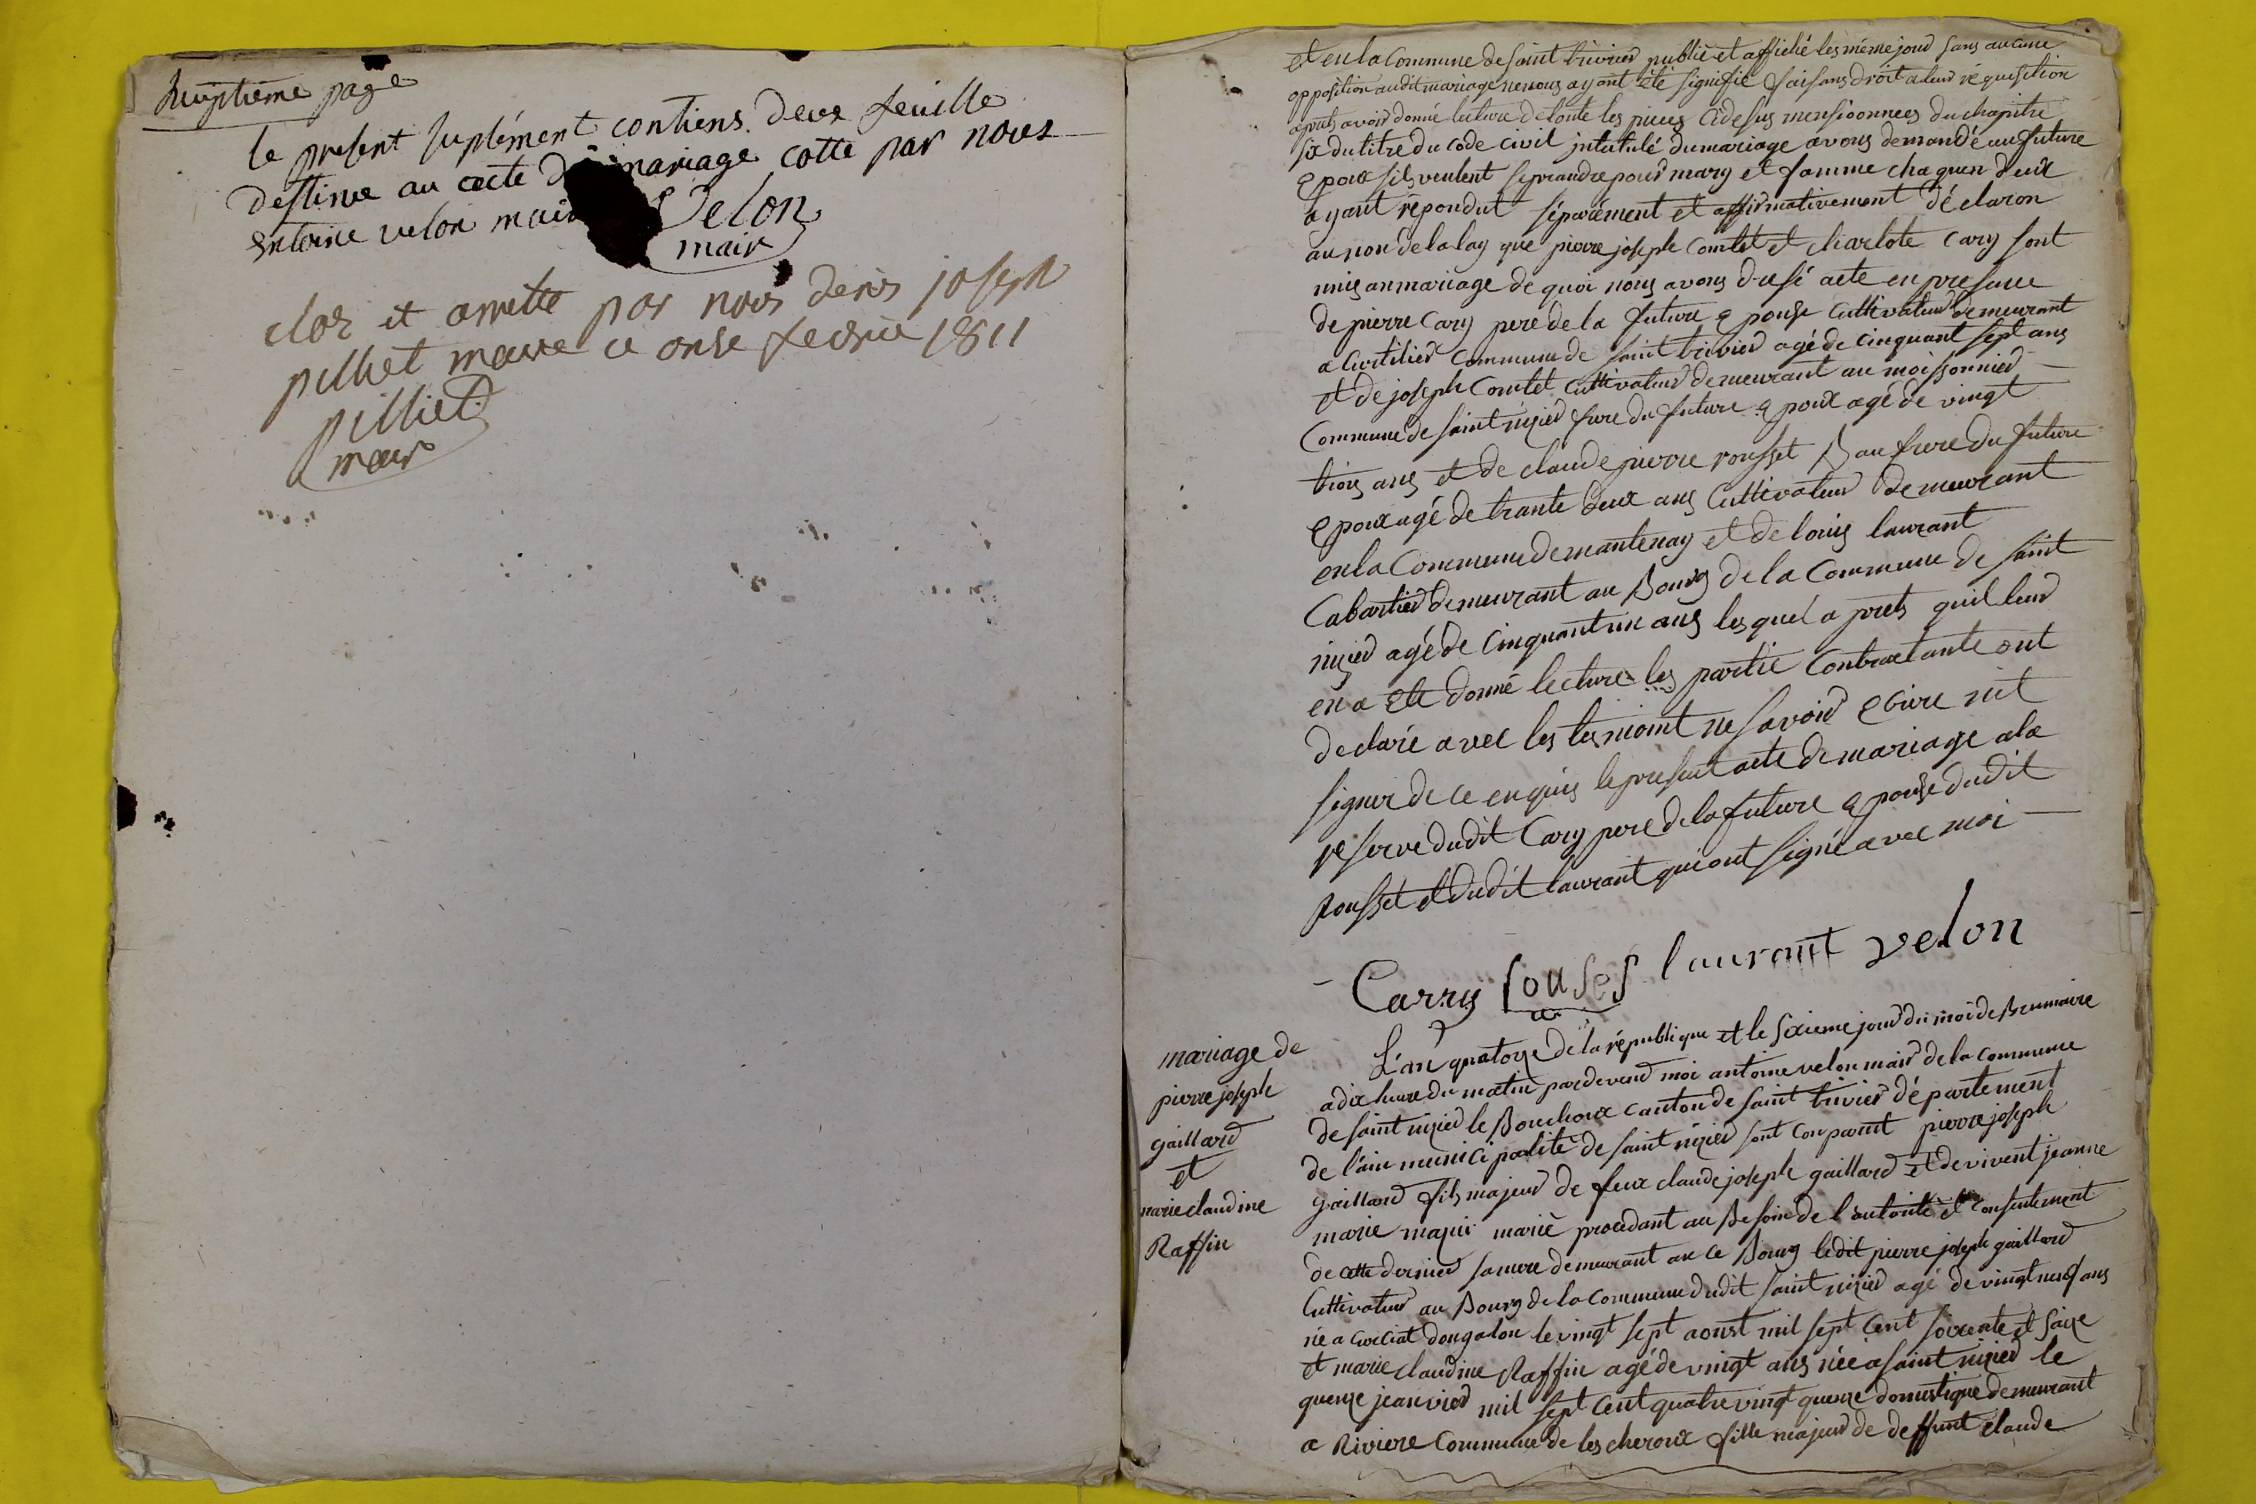 huiptieme page
le present suplément contiens deux feuille
destinee au acte de mariage cotte par nous
entoine velon mair Velon
mair
clos et arrette par nous denis joseph
pilliet maire ce onse fevrie 1811
pilliet
mair
et en la Commune de saint trivier publié et affiché les même jour sans aucune
opposition audit mariage ne nous ayant été signifié faisans droit a leur réquisition
après avoir donné lecture de toute les pieces cidesus mensioonnees du chapitre
six du titre du code civil intitulé du mariage avons demandé au future
epoux sils veulent se prandre pour mary et famme chaquun deux
ayant répondut séparément et affirmativement déclaron
au non de la lay que pierre joseph Comtet et charlote Cary sont
unis an mariage de quoi nous avons dresé acte en presance
de pierre Cary pere de la future epouse Cultivateur demeurant
a Curtilier Commune de saint trivier agé de cinquant sept ans
et de joseph Comtet Cultivateur demeurant au moissonnier
Commune de saint nizier frere du future epoux agé de vingt
trois ans et de claude pierre rousset Baufrere du future
epoux agé de trante deux ans Cultivateur demeurant
en la Commune de mantenay et de louis laurant
Cabartier demeurant au Bourg de la Commune de saint
nizier agé de Cinquant un ans lesquel a prets quil leur
en a ete donné lecture les partie Contractante ont
declaré avec les tesmoint ne savoir ecrire nit
signer de ce enquis le present acte de mariage a la
reserve dudit Cary pere de la future epouse dudit
Rousset et dudit laurant qui ont signé avec moi
Carry rouset laurant velon
mariage de
pierre joseph
gaillard
et
marie claudine
Raffin
L'an quatorze de la république et le sixieme jour du moi de Brumaire
a dix heure du matin pardevend moi antoine velon mair de la commune
de saint nizier le Bouchoux canton de saint trivier département
de l'ain municipalité de saint nizier sont conparut pierre joseph
gaillard fils majeur de feux claude joseph gaillard et de vivent jeanne
marie majui marié procedant au Besoin de l'autorité et consentement
de cette dernier sa mere demeurant an ce Bourg ledit pierre joseph gaillard
Cultivateur au Bourg de la Commune dudit saint nizier agé de vingt neuf ans
né a Curciat dongalon le vingt sept aoust mil sept Cent soixente et saize
et marie claudine Raffin agé de vingt ans née a saint nizier le
quenze jeanvier mil sept Cent quatre vingt quenze domestique demeurant
a Riviere Commune de lescheroux fille majeur de deffunt claude